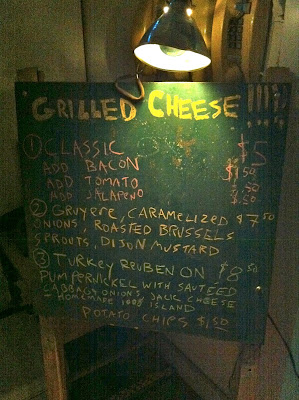 GRILLED CHEESE !!!!
① CLASSIC $5
ADD BACON $1.50
ADD TOMATO .50
ADD JALAPEÑO $.50
② GRUYERE, CARAMELIZED $7.50
ONIONS, ROASTED BRUSSELS
SPROUTS, DIJON MUSTARD
③ TURKEY REUBEN ON $8.50
PUMPERNICKEL WITH SAUTEED
CABBAGE, ONIONS, CHEESE
- HOMEMADE 1000 ISLAND
POTATO CHIPS $1.50